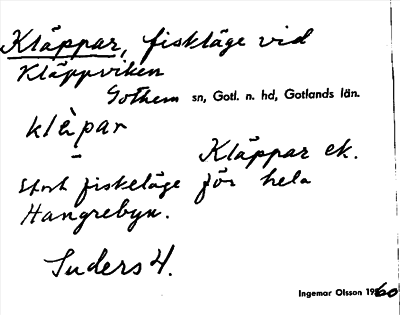 Kläppar, fiskläge vid
Kläppviken
Gothem sn, Gotl. n. hd, Gotlands län.
klèpar
Kläppar ek.
Stort fiskeläge för hela
Hangrebyn.
Suders 4.
Ingemar Olsson 1960